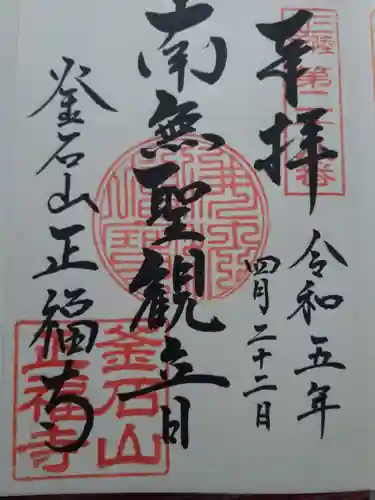 奉拝
三陸第
番
令和五年
四月二十二日
南無聖観立日
釜石山正福寺
釜石山
正福寺